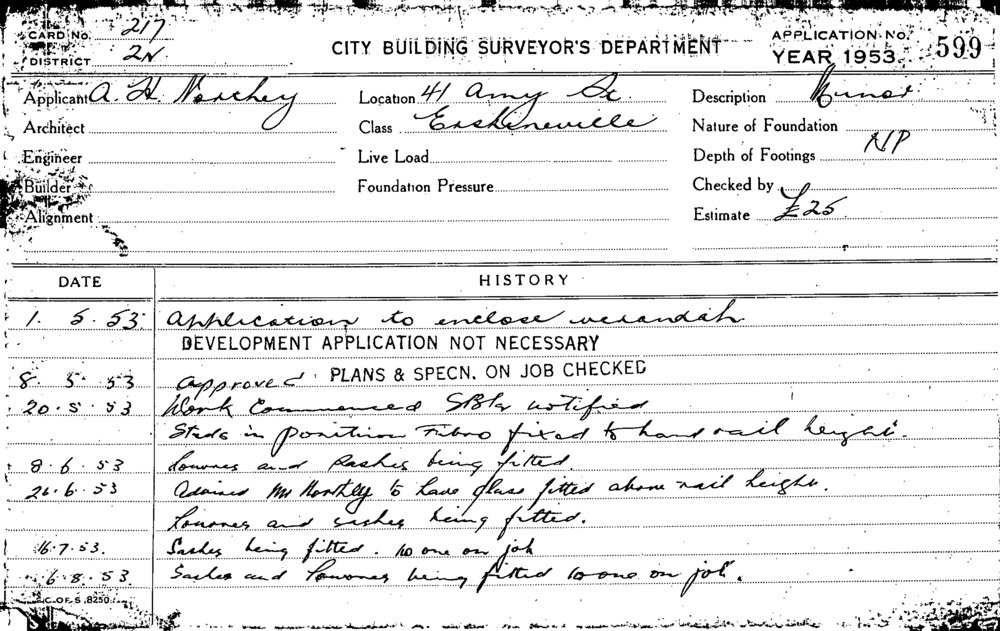 CARD No. 217
DISTRICT 2N
CITY BUILDING SURVEYOR'S DEPARTMENT
APPLICATION No. 599
YEAR 1953
Applicant A. H. Northey
Location 41 Amy St
Description Minor
Architect
Class Erskineville
Nature of Foundation
Engineer
Live Load
Depth of Footings NP
Builder
Foundation Pressure
Checked by
Alignment
Estimate £25
DATE HISTORY
1. 5. 53. Application to enclose verandah
DEVELOPMENT APPLICATION NOT NECESSARY
8. 5. 53 Approved PLANS & SPECN. ON JOB CHECKED
20. 5. 53 Work Commenced notified
Studs in position Fibro fixed to hand rail height.
8. 6. 53 Louvres and Sashes being fitted.
26. 6. 53 Advised Mr Northey to have glass fitted above rail height.
Louvres and sashes being fitted.
16. 7. 53. Sashes being fitted. No one on job
6. 8. 53. Sashes and Louvres being fitted No one on job.
C. OF S. 8250